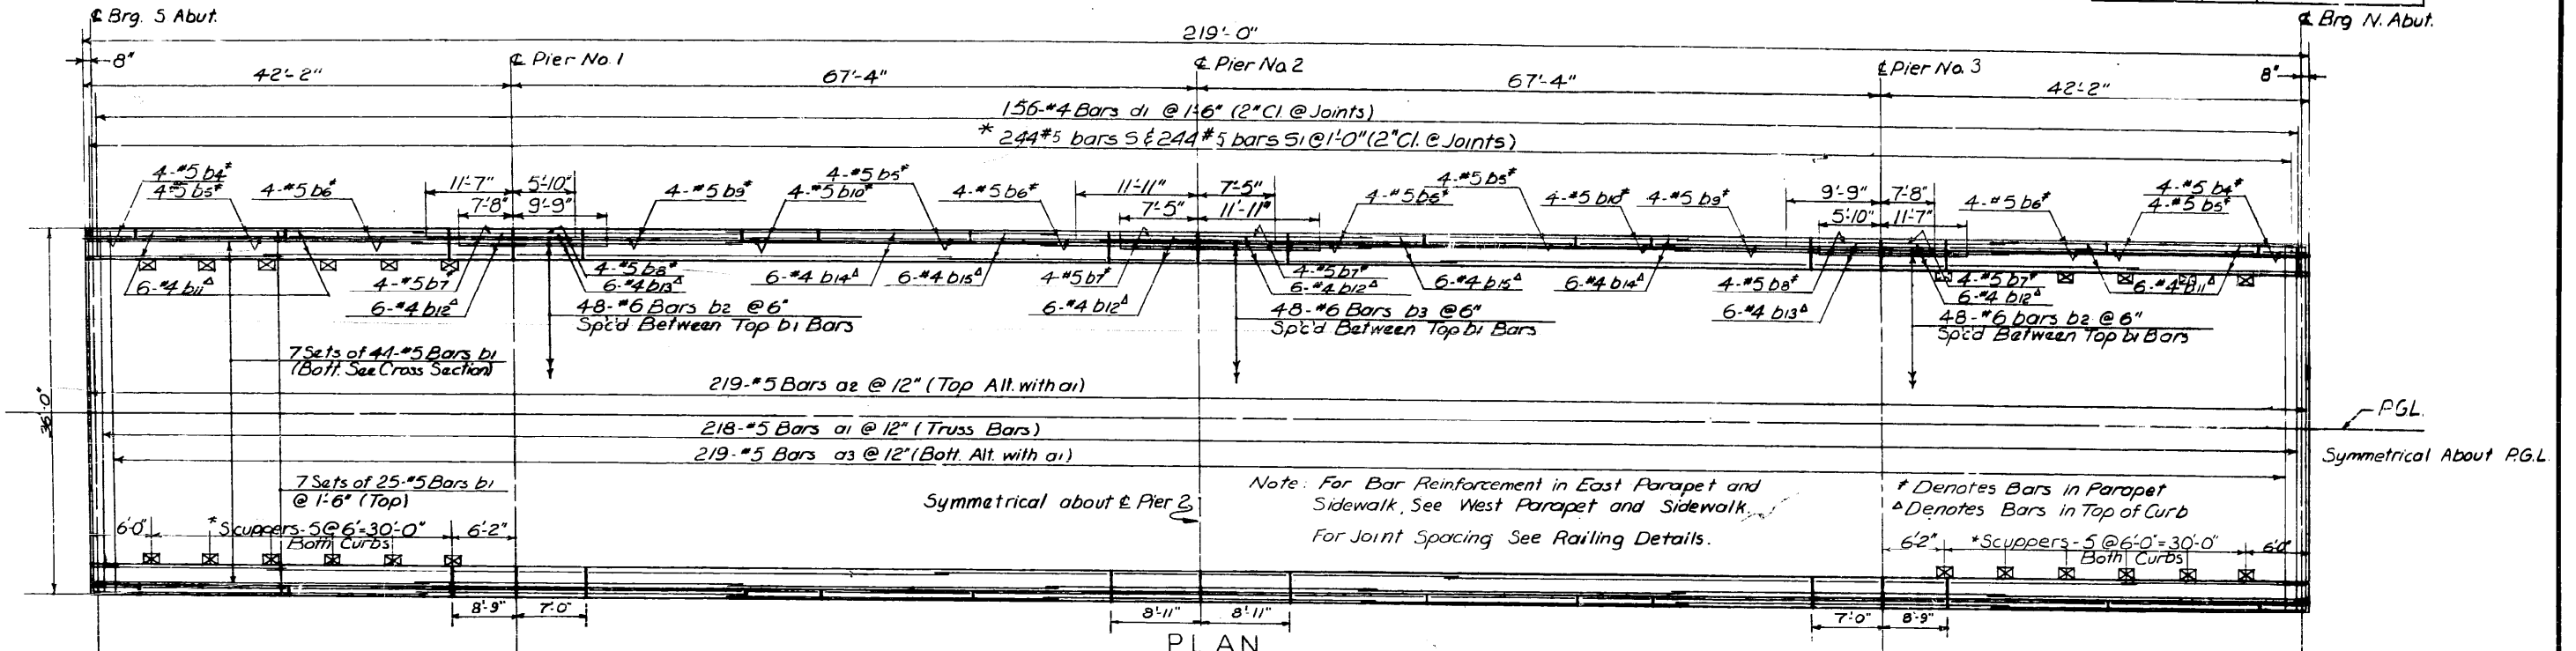 ℄ Brg. S Abut.
℄ Brg N. Abut.
219'-0"
8"
℄ Pier No. 1
℄ Pier No. 2
℄ Pier No. 3
8"
42'-2"
67'-4"
67'-4"
42'-2"
156-#4 Bars d1 @ 1'-6" (2" Cl. @ Joints)
* 244 #5 bars S & 244 #5 bars S1 @ 1'-0" (2" Cl. @ Joints)
4-#5 b4‡
4-#5 b5‡
4-#5 b6‡
11'-7"
5'-10"
7'-8"
9'-9"
4-#5 b9‡
4-#5 b5‡
4-#5 b10‡
4-#5 b6‡
11'-11"
7'-5"
7'-5"
11'-11"
4-#5 b6‡
4-#5 b5‡
4-#5 b10‡
4-#5 b9‡
9'-9"
7'-8"
5'-10"
11'-7"
4-#5 b6‡
4-#5 b4‡
4-#5 b5‡
6-#4 b11Δ
4-#5 b7‡
6-#4 b12Δ
4-#5 b8‡
6-#4 b13Δ
48-#6 Bars b2 @ 6"
Spc'd Between Top b1 Bars
6-#4 b14Δ
6-#4 b15Δ
4-#5 b7‡
6-#4 b12Δ
4-#5 b7‡
6-#4 b12Δ
48-#6 Bars b3 @ 6"
Spc'd Between Top b1 Bars
6-#4 b15Δ
6-#4 b14Δ
4-#5 b8‡
6-#4 b13Δ
4-#5 b7‡
6-#4 b12Δ
48-#6 bars b2 @ 6"
Spc'd Between Top b1 Bars
6-#4 b11Δ
7 Sets of 44-#5 Bars b1
(Bott. See Cross Section)
219-#5 Bars a2 @ 12" (Top Alt. with a1)
36'-0"
P.G.L.
218-#5 Bars a1 @ 12" (Truss Bars)
219-#5 Bars a3 @ 12" (Bott. Alt. with a1)
Symmetrical About P.G.L.
7 Sets of 25-#5 Bars b1
@ 1'-6" (Top)
Symmetrical about ℄ Pier 2
Note: For Bar Reinforcement in East Parapet and
Sidewalk, See West Parapet and Sidewalk.
For Joint Spacing See Railing Details.
‡ Denotes Bars in Parapet
Δ Denotes Bars in Top of Curb
6'-0"
*Scuppers-5@6'=30'-0"
Both Curbs
6'-2"
6'-2"
*Scuppers-5 @ 6'-0"=30'-0"
Both Curbs
6'-0"
8'-9"
7'-0"
8'-11"
8'-11"
7'-0"
8'-9"
PLAN